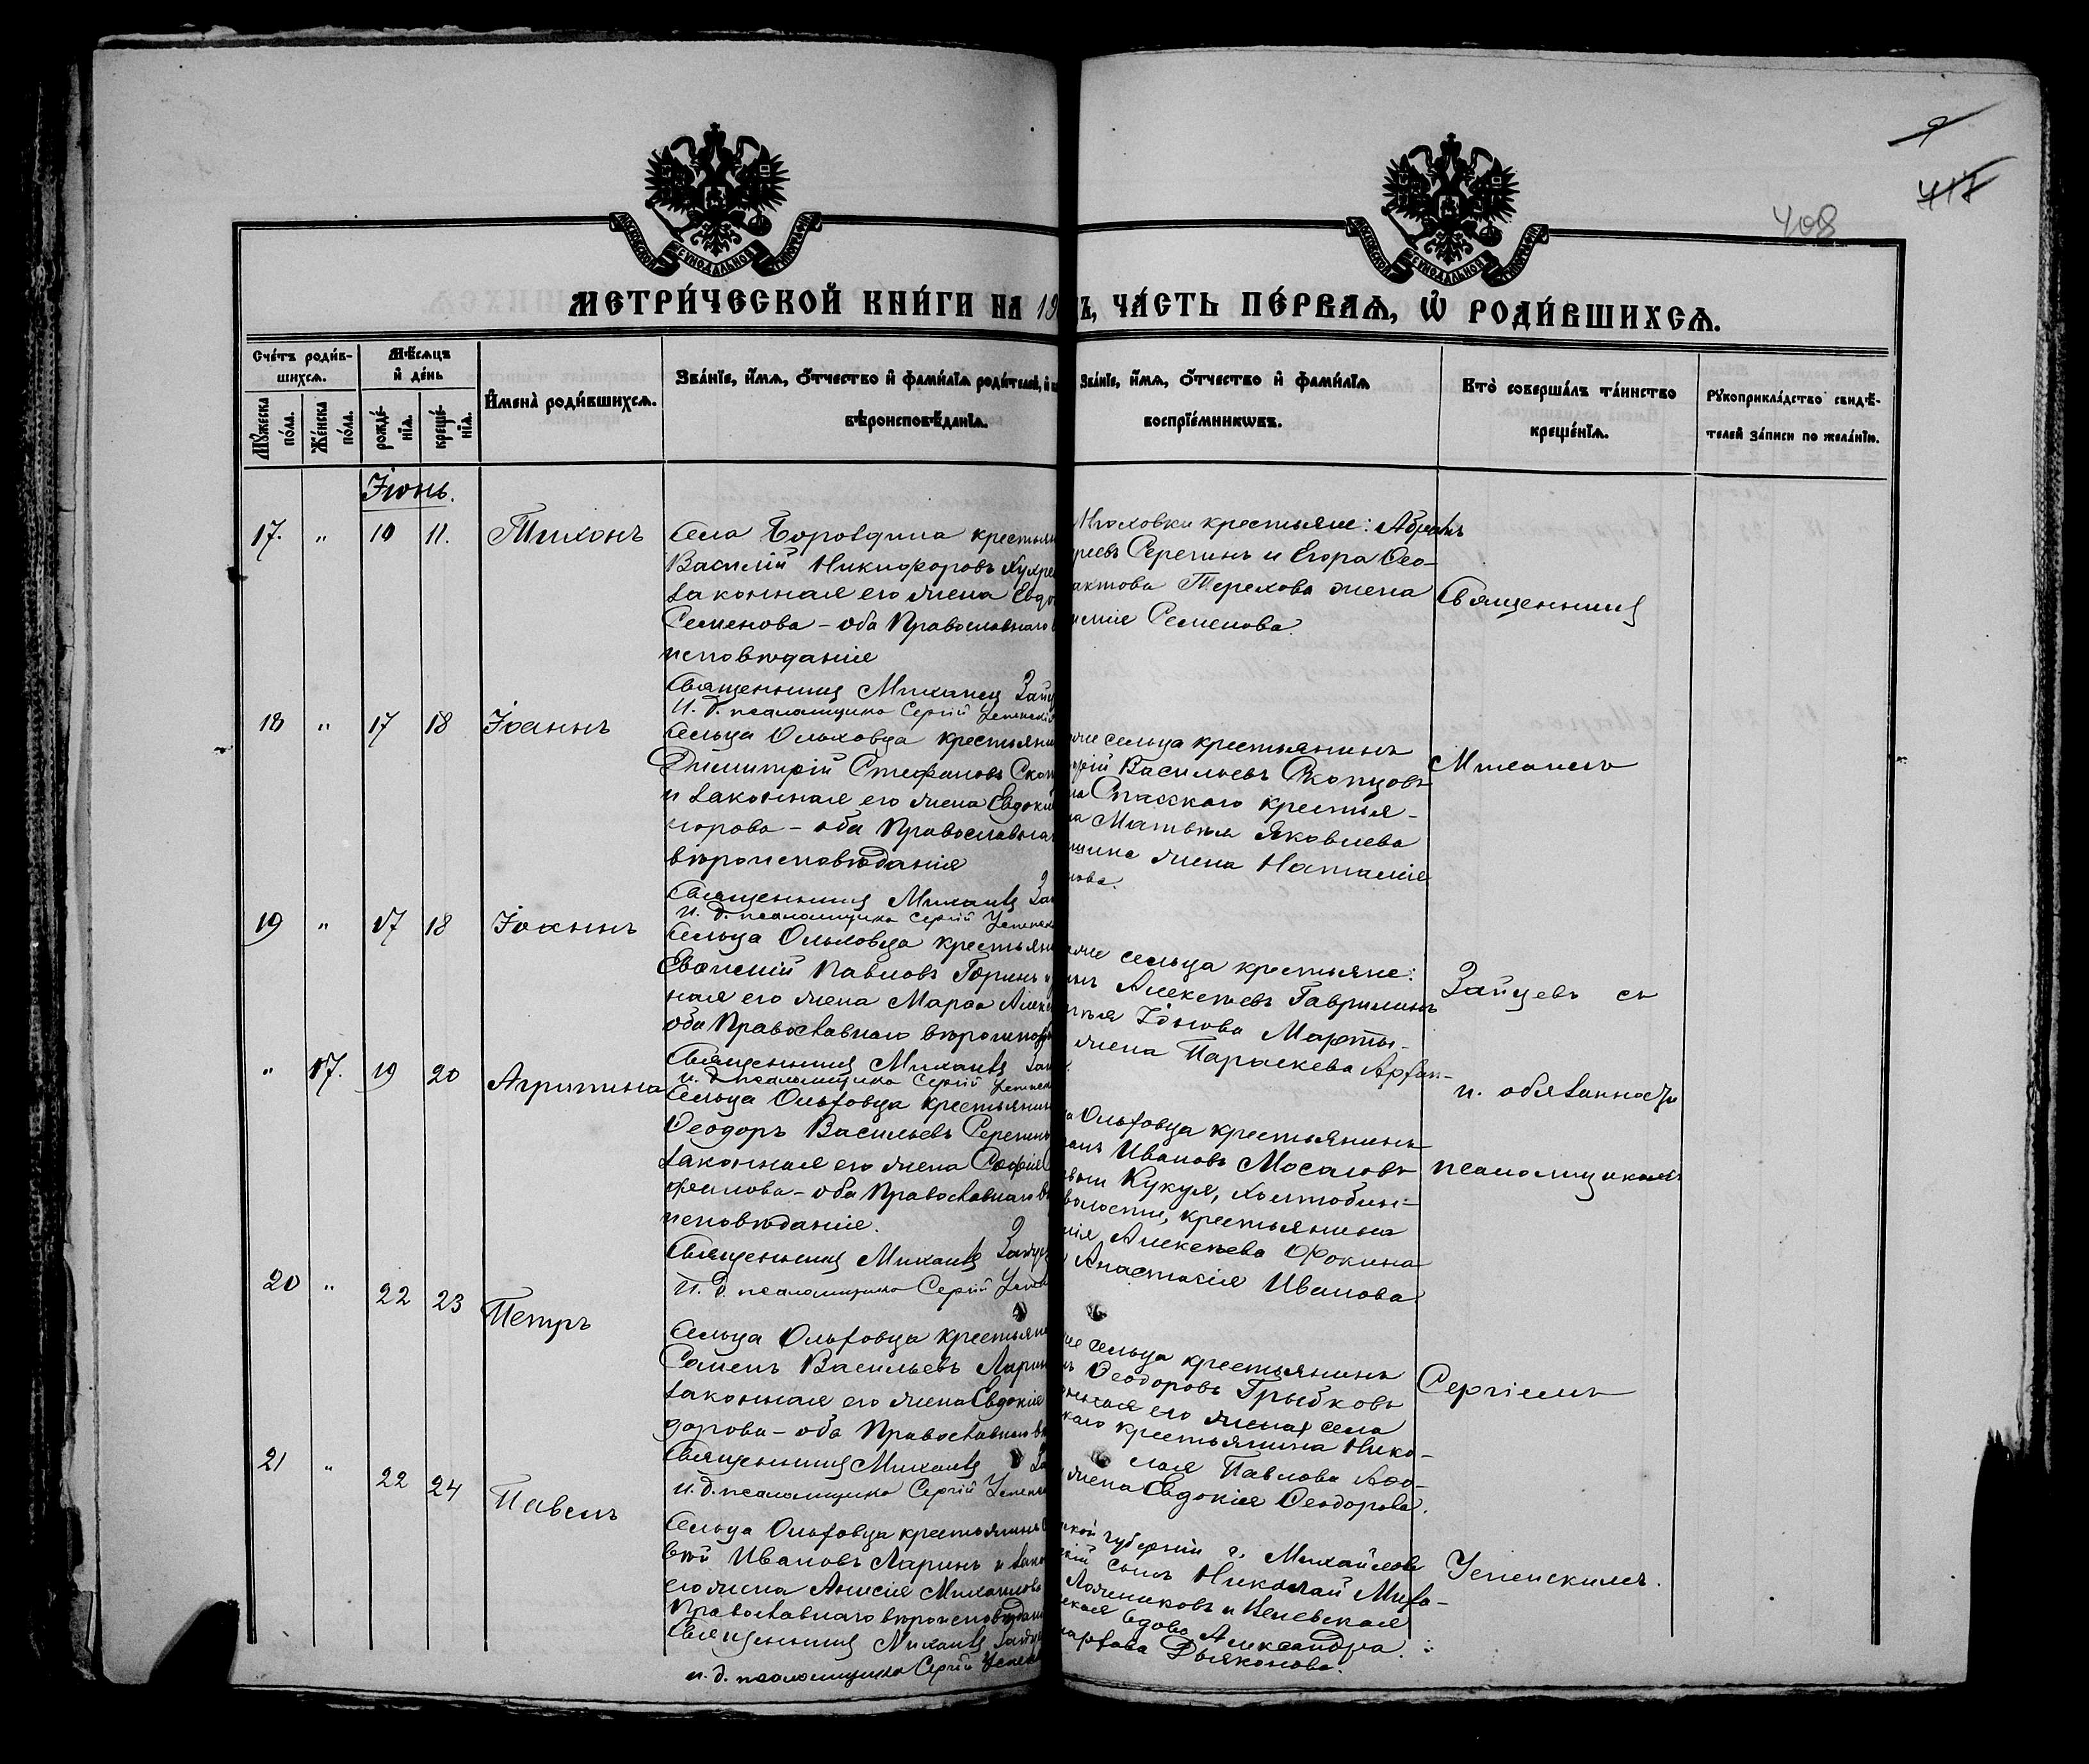 9
417
408
МОСКОВСКОЙ СѴНОДАЛЬНОЙ ТИПОГРАФІИ
МОСКОВСКОЙ СѴНОДАЛЬНОЙ ТИПОГРАФІИ
МЕТРИ́ЧЕСКОЙ КНИ́ГИ НА 19
Ъ, ЧА́СТЬ ПЕ́РВАѦ, Ѿ РОДИ́ВШИХСѦ.
Сче́тъ роди́в-
шихсѧ.
Мѣ́сѧцъ
и҆ де́нь
Мꙋ́жеска по́ла.
Же́нска по́ла.
рожде́-нїѧ.
креще́-нїѧ.
И҆мена̀ роди́вшихсѧ.
Зва́нїе, и҆́мѧ, ѻ҆́тчество и҆ фами́лїѧ роди́телей, и҆
вѣроисповѣ́данїѧ.
Зва́нїе, и҆́мѧ, ѻ҆́тчество и҆ фами́лїѧ
воспрїе́мникѡвъ.
Кто̀ соверша́лъ та́инство
креще́нїѧ.
Рꙋкоприкла́дство свидѣ́-
телей за́писи по жела́нїю.
Іюнь.
17. " 10 11. Тихонъ
Села Боровдина крестьян
Василій Никифоровъ
законная его жена Евдо
Семенова – оба Православнаго
исповѣданія
Священникъ Михаилъ Зайц
И. д. псаломщика Сергій Успенскій
крестьяне: Абрамъ
Серегинъ и Егора Ѳео-
актова Терехова жена
Семенова.
Священникъ
18 " 17 18 Іоаннъ
Сельца Ольховца крестьяни
Димитрій Стефановъ Скоп
и законная его жена Евдокі
горова – оба Православна
вѣроисповѣданія
Священникъ Михаилъ За
И. д. псаломщика Сергій Успенск
сельца крестьянинъ
Васильевъ Скопцовъ
Спасскаго крестья-
на Матвѣя Яковлева
жена Наталія
нова.
Михаилъ
19 " 17 18 Іоаннъ
Сельца Ольховца крестьян
Евсигній Павловъ Горинъ
ная его жена Марѳа Алекс
оба Православнаго вѣроиспов
Священникъ Михаилъ Зай
И. д. псаломщика Сергій Успенск
сельца крестьяне:
Алексѣевъ Гаврилинъ
Іонова Марты-
жена Параскева
Зайцевъ съ
" 17. 19 20 Агрипина
Сельца Ольховца крестьянин
Ѳеодоръ Васильевъ Серегинъ
законная его жена Софія
фимова – оба Православнаго в
исповѣданіе.
Священникъ Михаилъ Зайце
И. д. псаломщика Сергій Успен
Ольховца крестьянинъ
Ивановъ Мосаловъ
Кукуя, Холтобин-
волости, крестьянина
Алексѣева Фокина
Анастасія Иванова.
и. обязанность
псаломщикомъ
20 " 22 23 Петръ
Сельца Ольховца крестьяни
Семенъ Васильевъ Ларин
законная его жена Евдокія
дорова – оба Православнаго в
Священникъ Михаилъ За
И. д. псаломщика Сергій Успенск
сельца крестьянинъ
Ѳеодоровъ Грыбковъ
его жена, села
крестьянина Нико-
лая Павлова
жена Евдокія Ѳеодорова.
Сергіемъ
21 " 22 24 Павелъ
Сельца Ольховца крестьянинъ
вѣй Ивановъ Ларинъ и зако
его жена Анисія Михаилова
Православнаго вѣроисповѣдан
Священникъ Михаилъ Зайце
и. д. псаломщика Сергій Успенс
губерніи г. Михайлова
сынъ Николай Миха-
Ложниковъ и Веневская
вдова Александра
Дьяконова.
Успенскимъ.